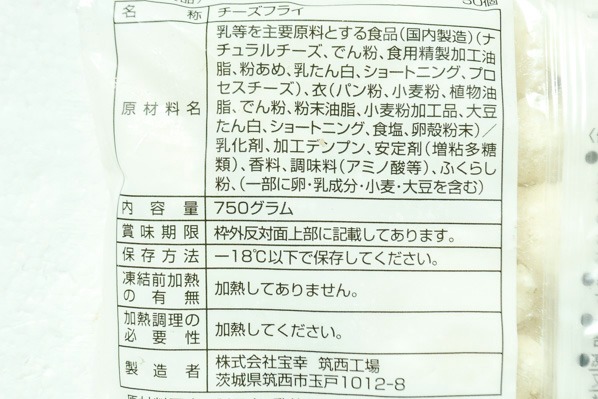 名称 チーズフライ
原材料名 乳等を主要原料とする食品(国内製造)(ナ
チュラルチーズ、でん粉、食用精製加工油
脂、粉あめ、乳たん白、ショートニング、プロ
セスチーズ)、衣(パン粉、小麦粉、植物油
脂、でん粉、粉末油脂、小麦粉加工品、大豆
たん白、ショートニング、食塩、卵殻粉末)/
乳化剤、加工デンプン、安定剤(増粘多糖
類)、香料、調味料(アミノ酸等)、ふくらし
粉、(一部に卵・乳成分・小麦・大豆を含む)
内容量 750グラム
賞味期限 枠外反対面上部に記載してあります。
保存方法 −18℃以下で保存してください。
凍結前加熱
の有無 加熱してありません。
加熱調理の
必要性 加熱してください。
製造者 株式会社宝幸 筑西工場
茨城県筑西市玉戸1012-8